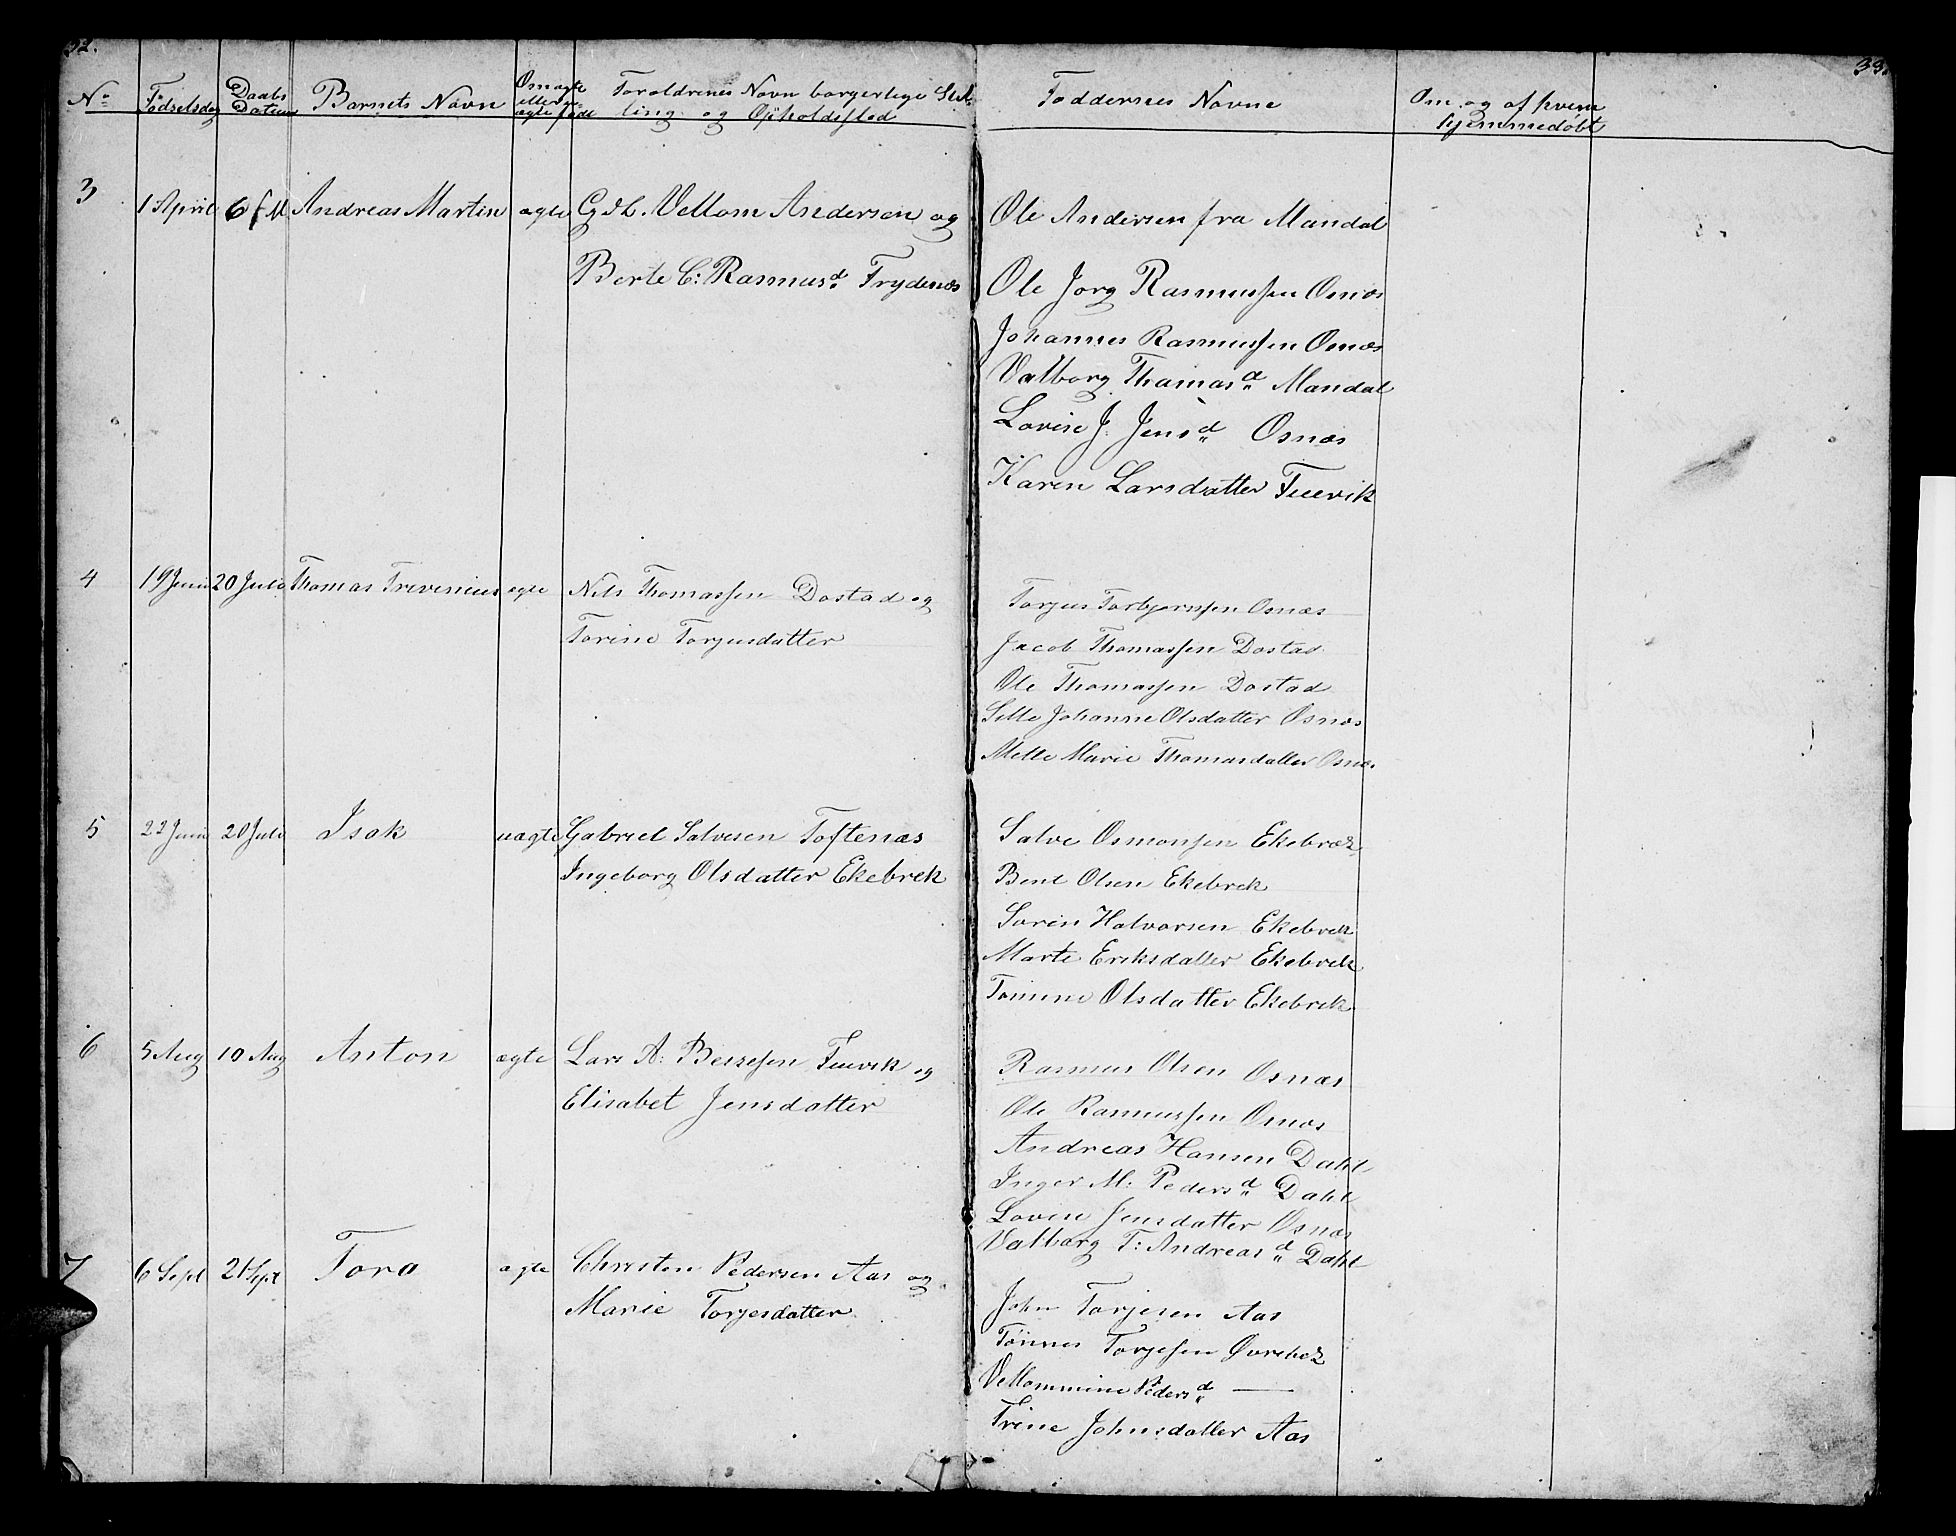 32.
33.
No Fødselsdag Daabs Datum Barnets Navn Om ægte eller uægte født Foroldrenes Navn borgerlige Stilling og Opholdssted Faddernes Navne Om og af hvem hjemmedøbt
3 1 April 6 f M Andreas Martin ægte Gdb. Vellom Andersen og
Berte C: Rasmusd. Frydenæs
Ole Andersen fra Mandal
Ole Jørg Rasmussen Osnæs
Johannes Rasmussen Osnæs
Valborg Thomasd. Mandal
Lovise J. Jensd. Osnæs
Karen Larsdatter Fuevik
4 19 Juni 20 Juli Thomas Trevenius ægte Nils Thomassen Dostad og
Torine Torjusdatter
Torjus Torbjornssen Osnæs
Jacob Thomassen Dostad
Ole Thomassen Dostad
Sille Johanne Olsdatter Osnæs
Mette Marie Thomasdatter Osnæs
5 22 Juni 20 Juli Isak uægte Gabriel Salvesen Toftenæs
Ingeborg Olsdatter Ekebrek
Salve Osmonsen Ekebræk
Bent Olsen Ekebrek
Søren Halvorsen Ekebrek
Marte Eriksdatter Ekebrek
Tomine Olsdatter Ekebrek
6 5 Aug 10 Aug Anton ægte Lars A: Berresen Fuevik og
Elisabet Jensdatter
Rasmus Olsen Osnæs
Ole Rasmussen Osnæs
Andreas Hansen Dahl
Inger M: Pedersd. Dahl
Lovise Jensdatter Osnæs
Valborg T: Andreasd. Dahl
7 6 Sept 21 Spt Tora ægte Christen Pedersen Aas og
Marie Torjesdatter
John Torjesen Aas
Tönnes Torjesen Øvrebek
Vellommine Pedersd. —
Trine Johnsdatter Aas